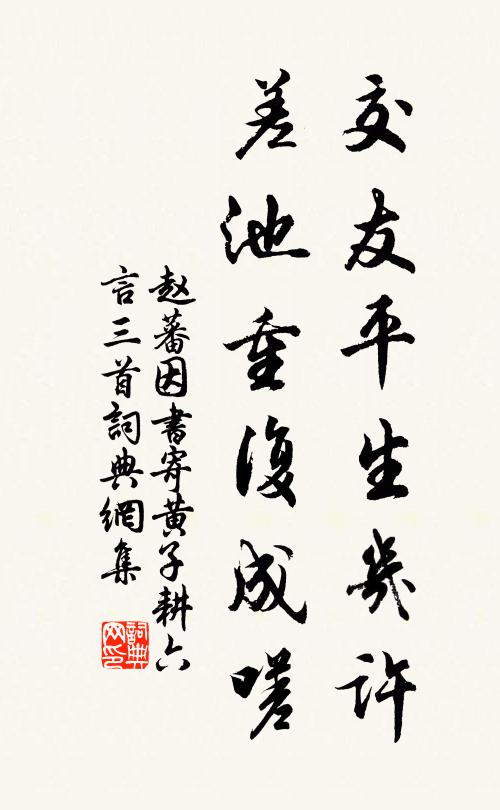 交友平生几许
差池重復成嗟
赵蕃因書寄黄子耕六
言三首詞典網集
詞典網印